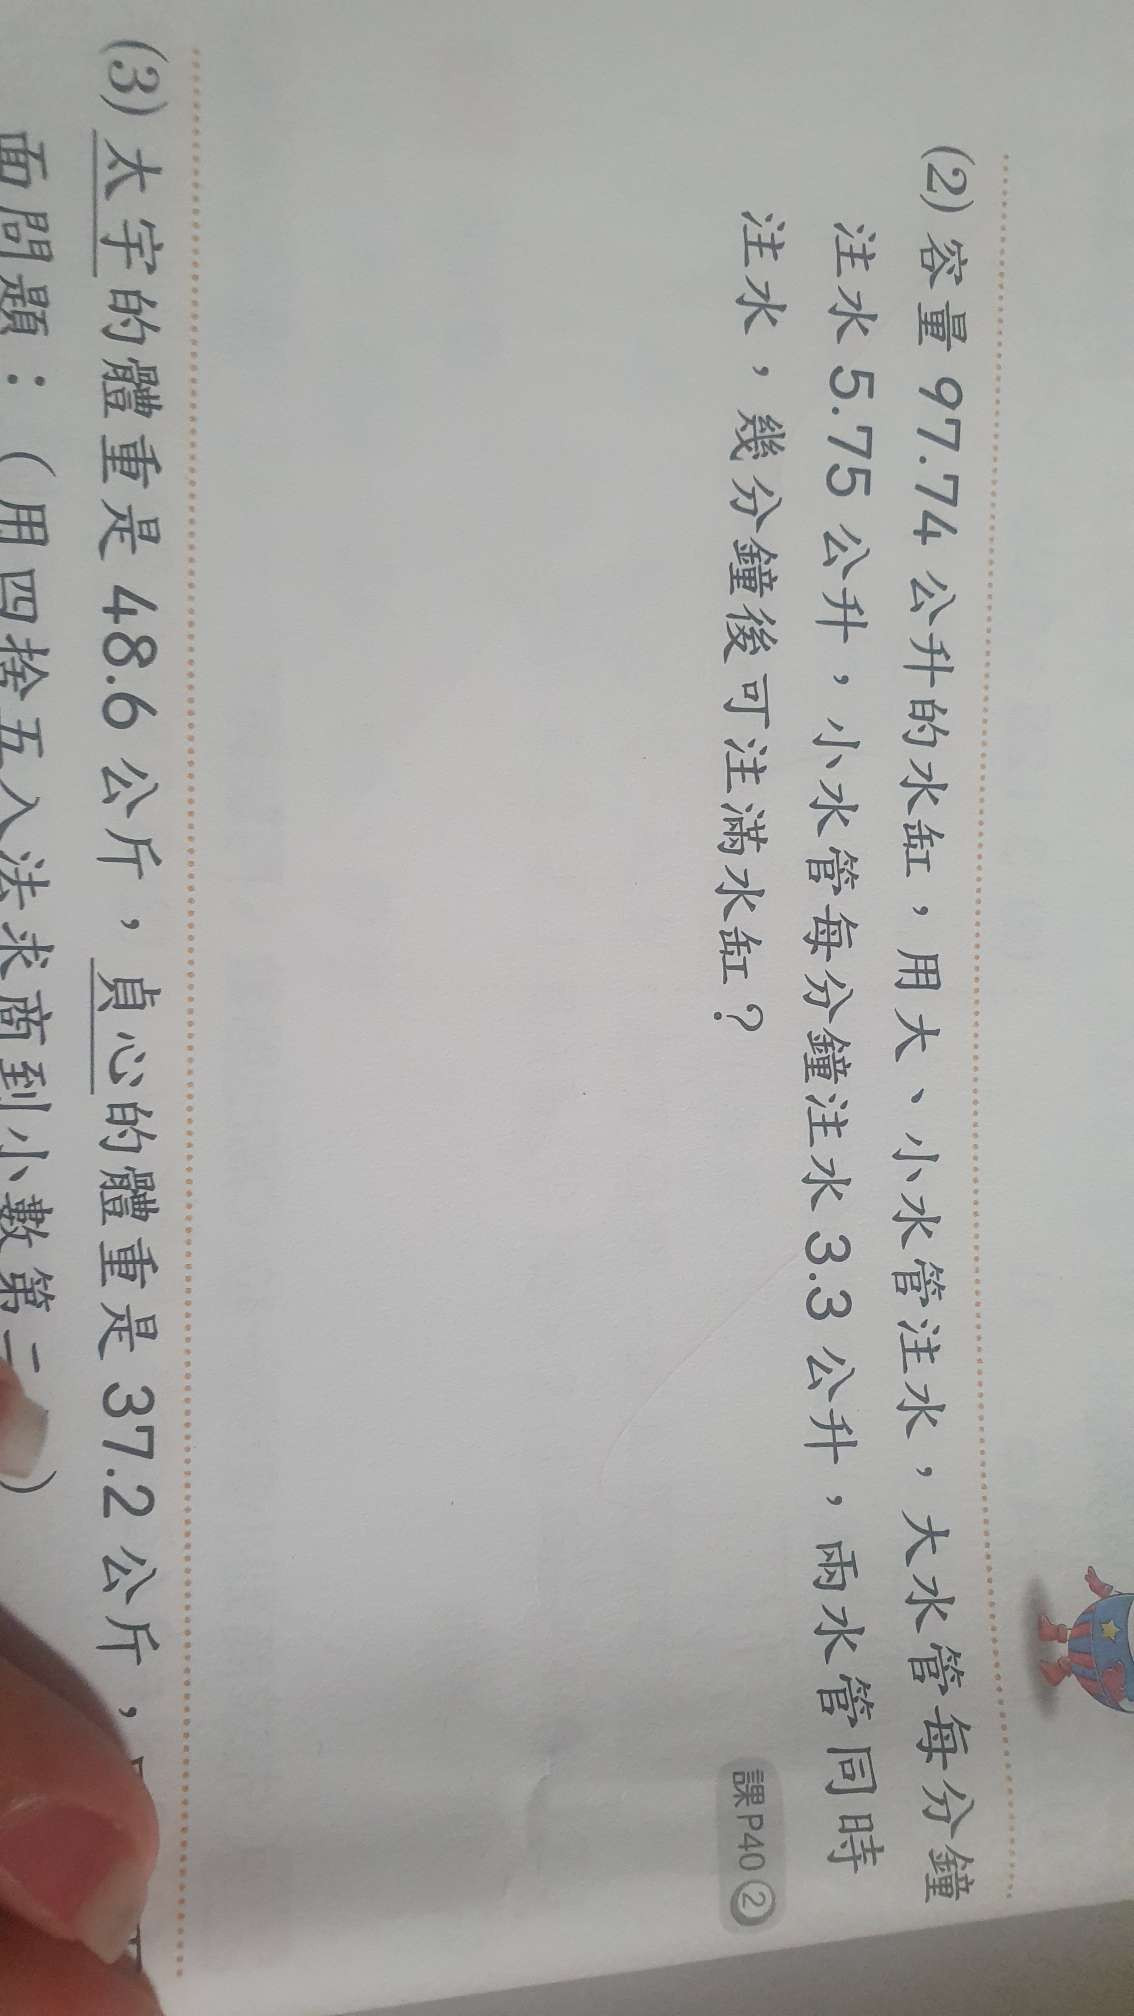 (2) 容量 97.74 公升的水缸，用大、小水管注水，大水管每分鐘
注水 5.75 公升，小水管每分鐘注水 3.3 公升，兩水管同時
注水，幾分鐘後可注滿水缸？
課P40②
(3) 太宇的體重是 48.6 公斤，貞心的體重是 37.2 公斤，
面問題：（用四捨五入法求商到小數第二）